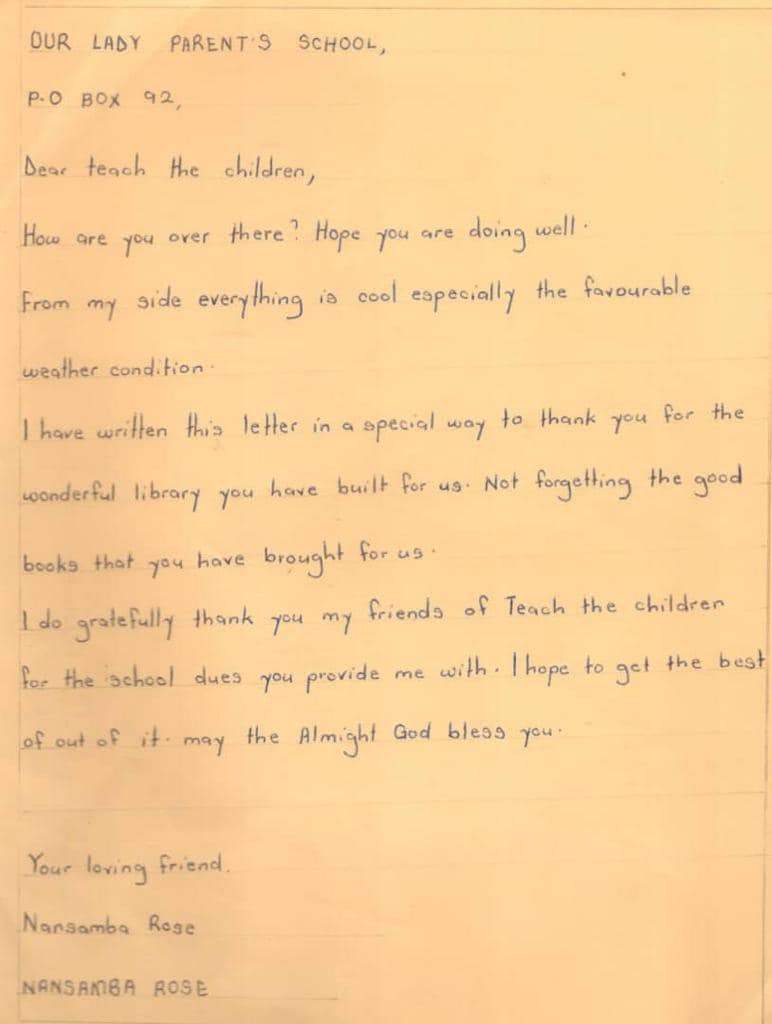 OUR LADY PARENT'S SCHOOL,
P.O BOX 92,
Dear teach the children,
How are you over there? Hope you are doing well.
From my side everything is cool especially the favourable
weather condition.
I have written this letter in a special way to thank you for the
wonderful library you have built for us. Not forgetting the good
books that you have brought for us.
I do gratefully thank you my friends of Teach the children
for the school dues you provide me with. I hope to get the best
of out of it. may the Almight God bless you.
Your loving friend.
Nansamba Rose
NANSAMBA ROSE